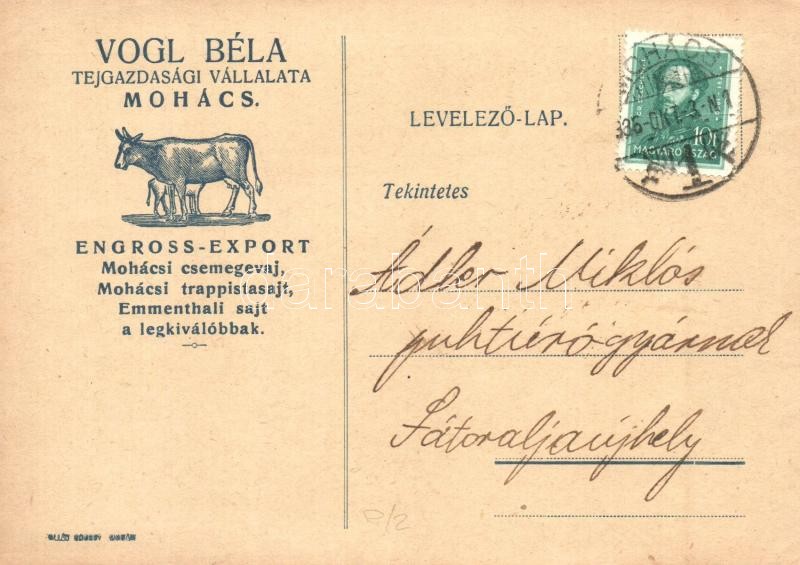 VOGL BÉLA
TEJGAZDASÁGI VÁLLALATA
MOHÁCS.
ENGROSS-EXPORT
Mohácsi csemegevaj,
Mohácsi trappistasajt,
Emmenthali sajt
a legkiválóbbak.
LEVELEZŐ-LAP.
MOHÁCS
936-OKT-3-N
10f
MAGYARORSZÁG
1
Tekintetes
Ádler Miklós
Sátoraljaújhely
darabanth
P/2